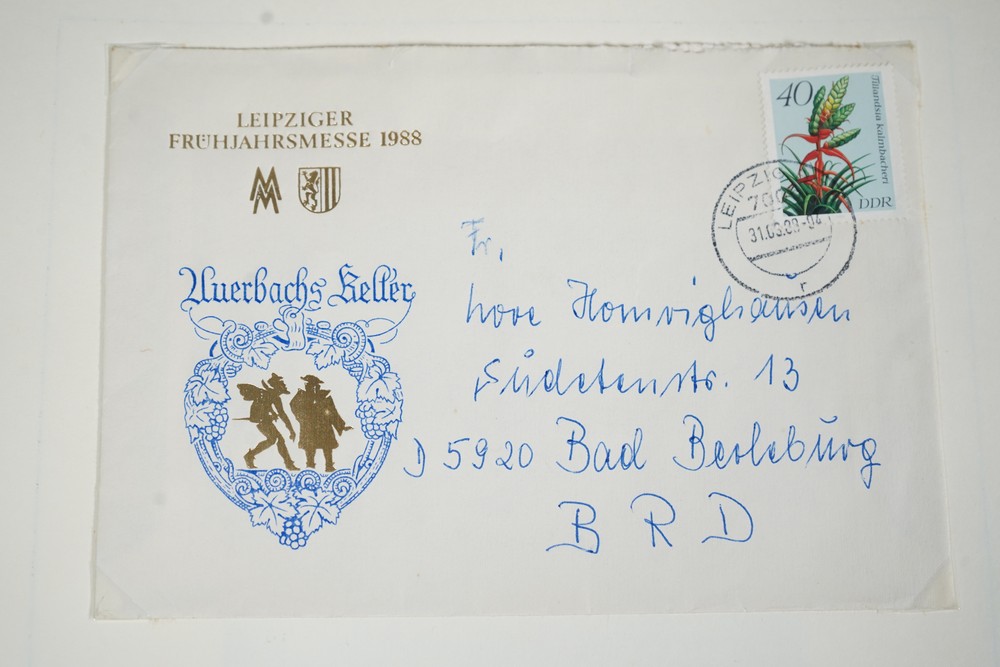 LEIPZIGER
FRÜHJAHRSMESSE 1988
MM
Auerbachs Keller
40
Tillandsia kalmbacheri
DDR
LEIPZIG
31.
Fr.
Homrighausen
Sudetenstr. 13
D 5920 Bad Berleburg
BRD